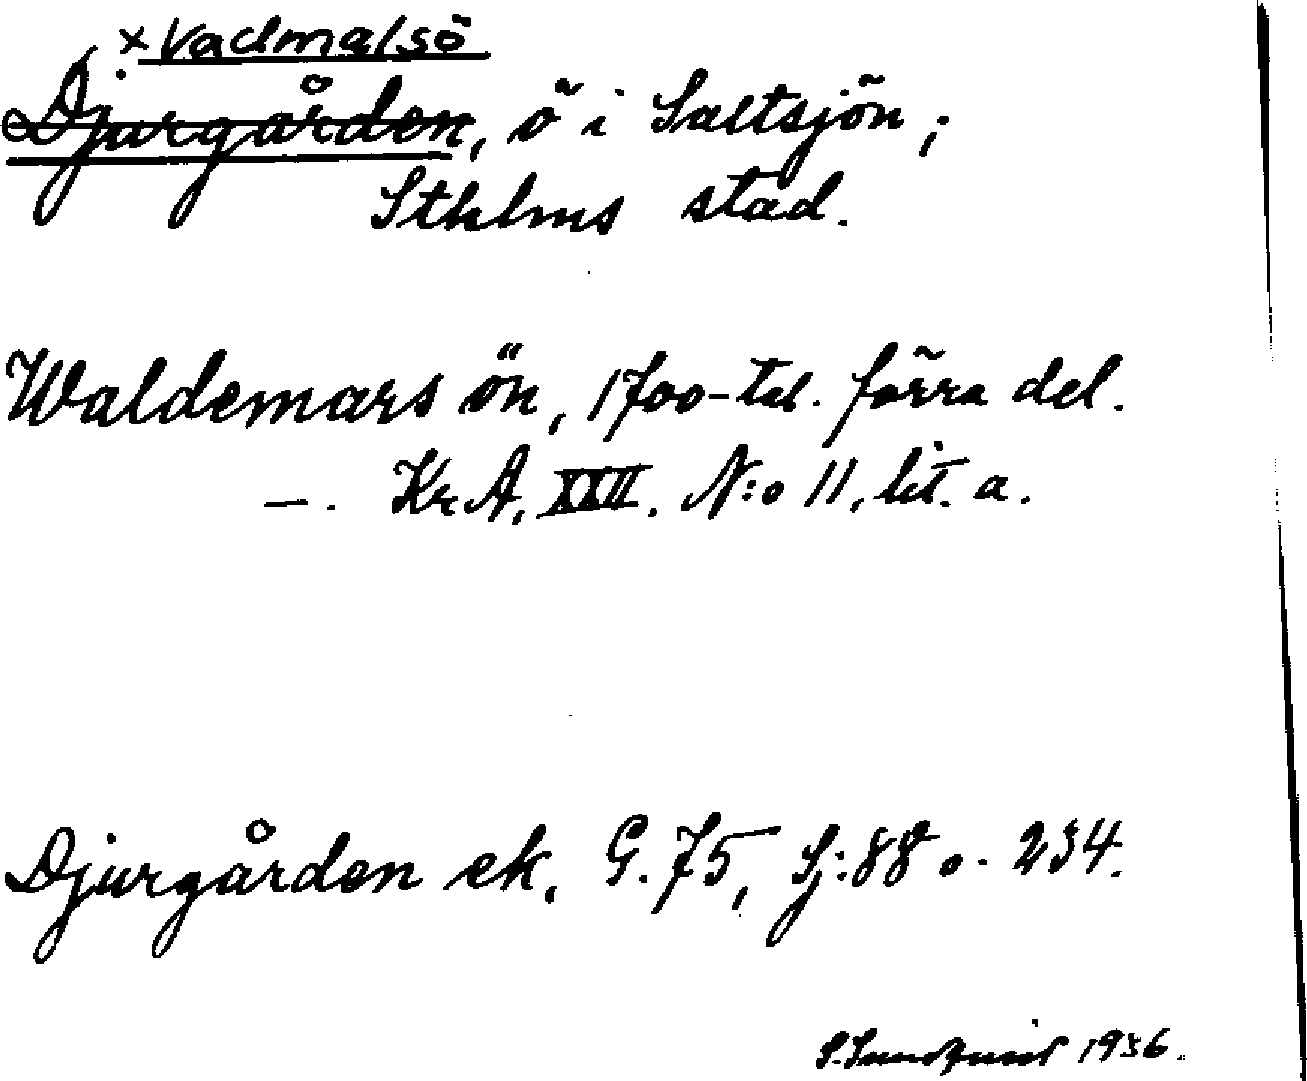 × Vadmalsö
Djurgården, ö i Saltsjön;
Sthlms stad.
Waldemars ön, 1700-tal. förra del.
—. Kr.A. XXII. N:o 11, lit. a.
Djurgården ek. G. 75, Sj:88 o. 234.
S. Sundquist 1936.